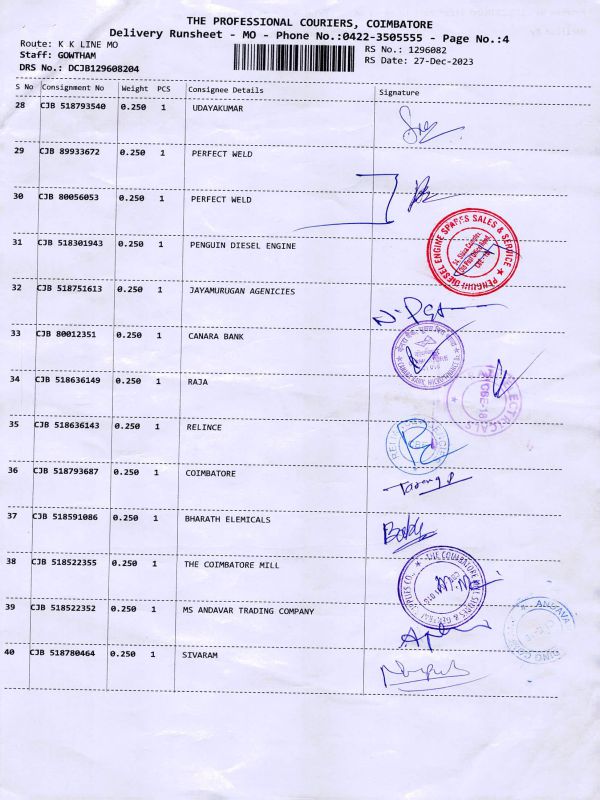 THE PROFESSIONAL COURIERS, COIMBATORE
Delivery Runsheet - MO - Phone No.:0422-3505555 - Page No.:4
Route: K K LINE MO
Staff: GOWTHAM
DRS No.: DCJB129608204
RS No.: 1296082
RS Date: 27-Dec-2023
S No Consignment No Weight PCS Consignee Details Signature
28 CJB 518793540 0.250 1 UDAYAKUMAR
29 CJB 89933672 0.250 1 PERFECT WELD
30 CJB 80056053 0.250 1 PERFECT WELD
31 CJB 518301943 0.250 1 PENGUIN DIESEL ENGINE
PENGUIN DIESEL ENGINE SPARES SALES & SERVICE
32 CJB 518751613 0.250 1 JAYAMURUGAN AGENICIES
33 CJB 80012351 0.250 1 CANARA BANK
34 CJB 518636149 0.250 1 RAJA
ELECTRICALS
35 CJB 518636143 0.250 1 RELINCE
36 CJB 518793687 0.250 1 COIMBATORE
37 CJB 518591086 0.250 1 BHARATH ELEMICALS
38 CJB 518522355 0.250 1 THE COIMBATORE MILL
39 CJB 518522352 0.250 1 MS ANDAVAR TRADING COMPANY
40 CJB 518780464 0.250 1 SIVARAM